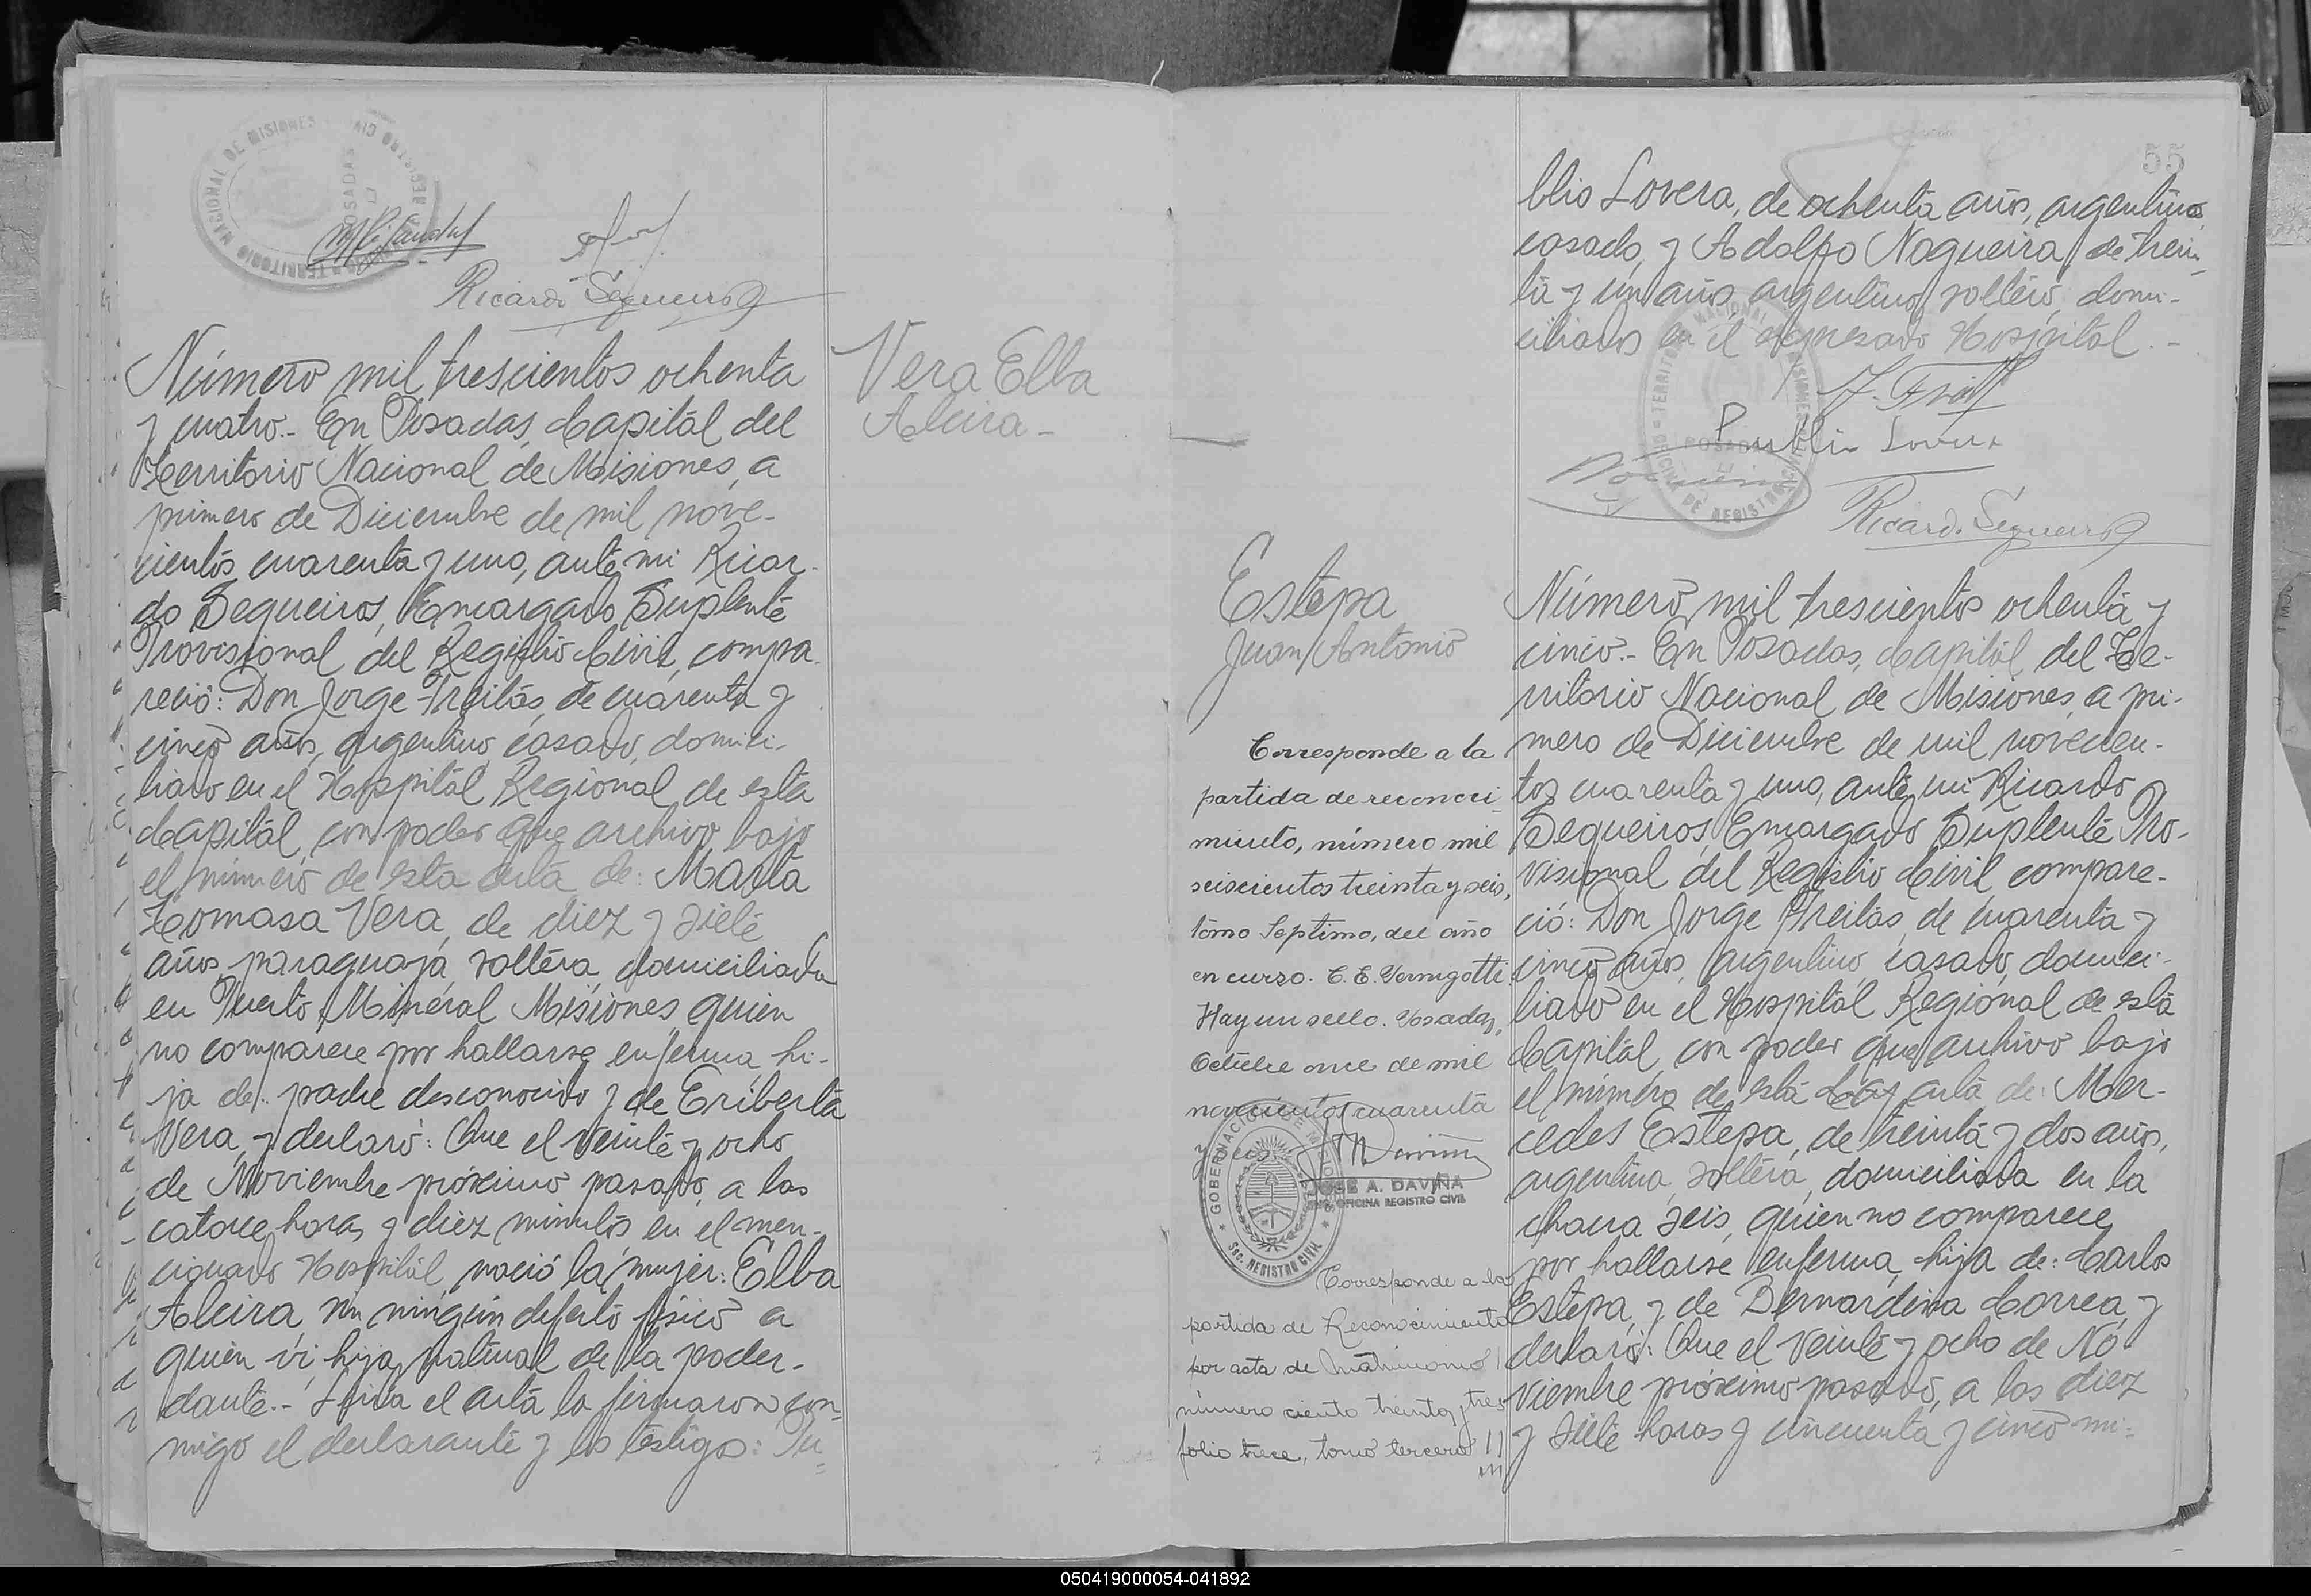 TERRITORIO NACIONAL DE MISIONES
POSADAS
Ricardo Sequeiros
Número mil trescientos ochenta
y cuatro.- En Posadas, Capital del
Territorio Nacional de Misiones, a
primero de Diciembre de mil nove-
cientos cuarenta y uno, ante mi Ricar-
do Sequeiros, Encargado Suplente
Provisional del Registro Civil, compa-
reció: Don Jorge Freitas, de cuarenta y
cinco años, argentino, casado, domici-
liado en el Hospital Regional de esta
Capital, con poder que archivo bajo
el número de esta acta de: María
Tomasa Vera, de diez y siete
años, paraguaya, soltera, domiciliada
en Puerto Mineral Misiones, quien
no comparece por hallarse enferma, hi-
ja de: padre desconocido y de Eriberta
Vera, y declaró: Que el veinte y ocho
de Noviembre próximo pasado, a las
catorce horas y diez minutos en el men-
cionado Hospital, nació la mujer: Elba
Alcira, sin ningún defecto físico a
quien vi, hija natural de la poder-
dante.- Leida el acta la firmaron con-
migo el declarante y los testigos: Pu=
Vera Elba
Alcira -
55
blio Lovera, de ochenta años, argentino
casado, y Adolfo Nogueira, de trein-
ta y un años, argentino, soltero, domi-
ciliados en el expresado Hospital. -
Publio Lovera
Ricardo Sequeiros
Estepa
Juan Antonio
Corresponde a la
partida de reconoci
miento, número mil
seiscientos treinta y seis,
tomo Septimo, del año
en curso. C. E. Vernigotti
Hay un sello. Posadas,
Octubre once de mil
novecientos cuarenta
GOBERNACION
Sec. REGISTRO CIVIL
JOSE A. DAVIÑA
OFICINA REGISTRO CIVIL
Corresponde a la
partida de Reconocimiento
por acta de Matrimonio
número ciento treinta y tres
folio trece, tomo tercero
Número mil trescientos ochenta y
cinco.- En Posadas, Capital del Te-
rritorio Nacional de Misiones, a pri-
mero de Diciembre de mil novecien-
tos cuarenta y uno, ante mi Ricardo
Sequeiros, Encargado Suplente Pro-
visional del Registro Civil, compare-
ció: Don Jorge Freitas, de cuarenta y
cinco años, argentino, casado, domici-
liado en el Hospital Regional de esta
Capital, con poder que archivo bajo
el número de esta acta de: Mer-
cedes Estepa, de treinta y dos años,
argentina, soltera, domiciliada en la
chacra seis, quien no comparece
por hallarse enferma, hija de: Carlos
Estepa, y de Bernardina Correa, y
declaró: Que el veinte y ocho de No
viembre próximo pasado, a las diez
y siete horas y cincuenta y cinco mi=
050419000054-041892